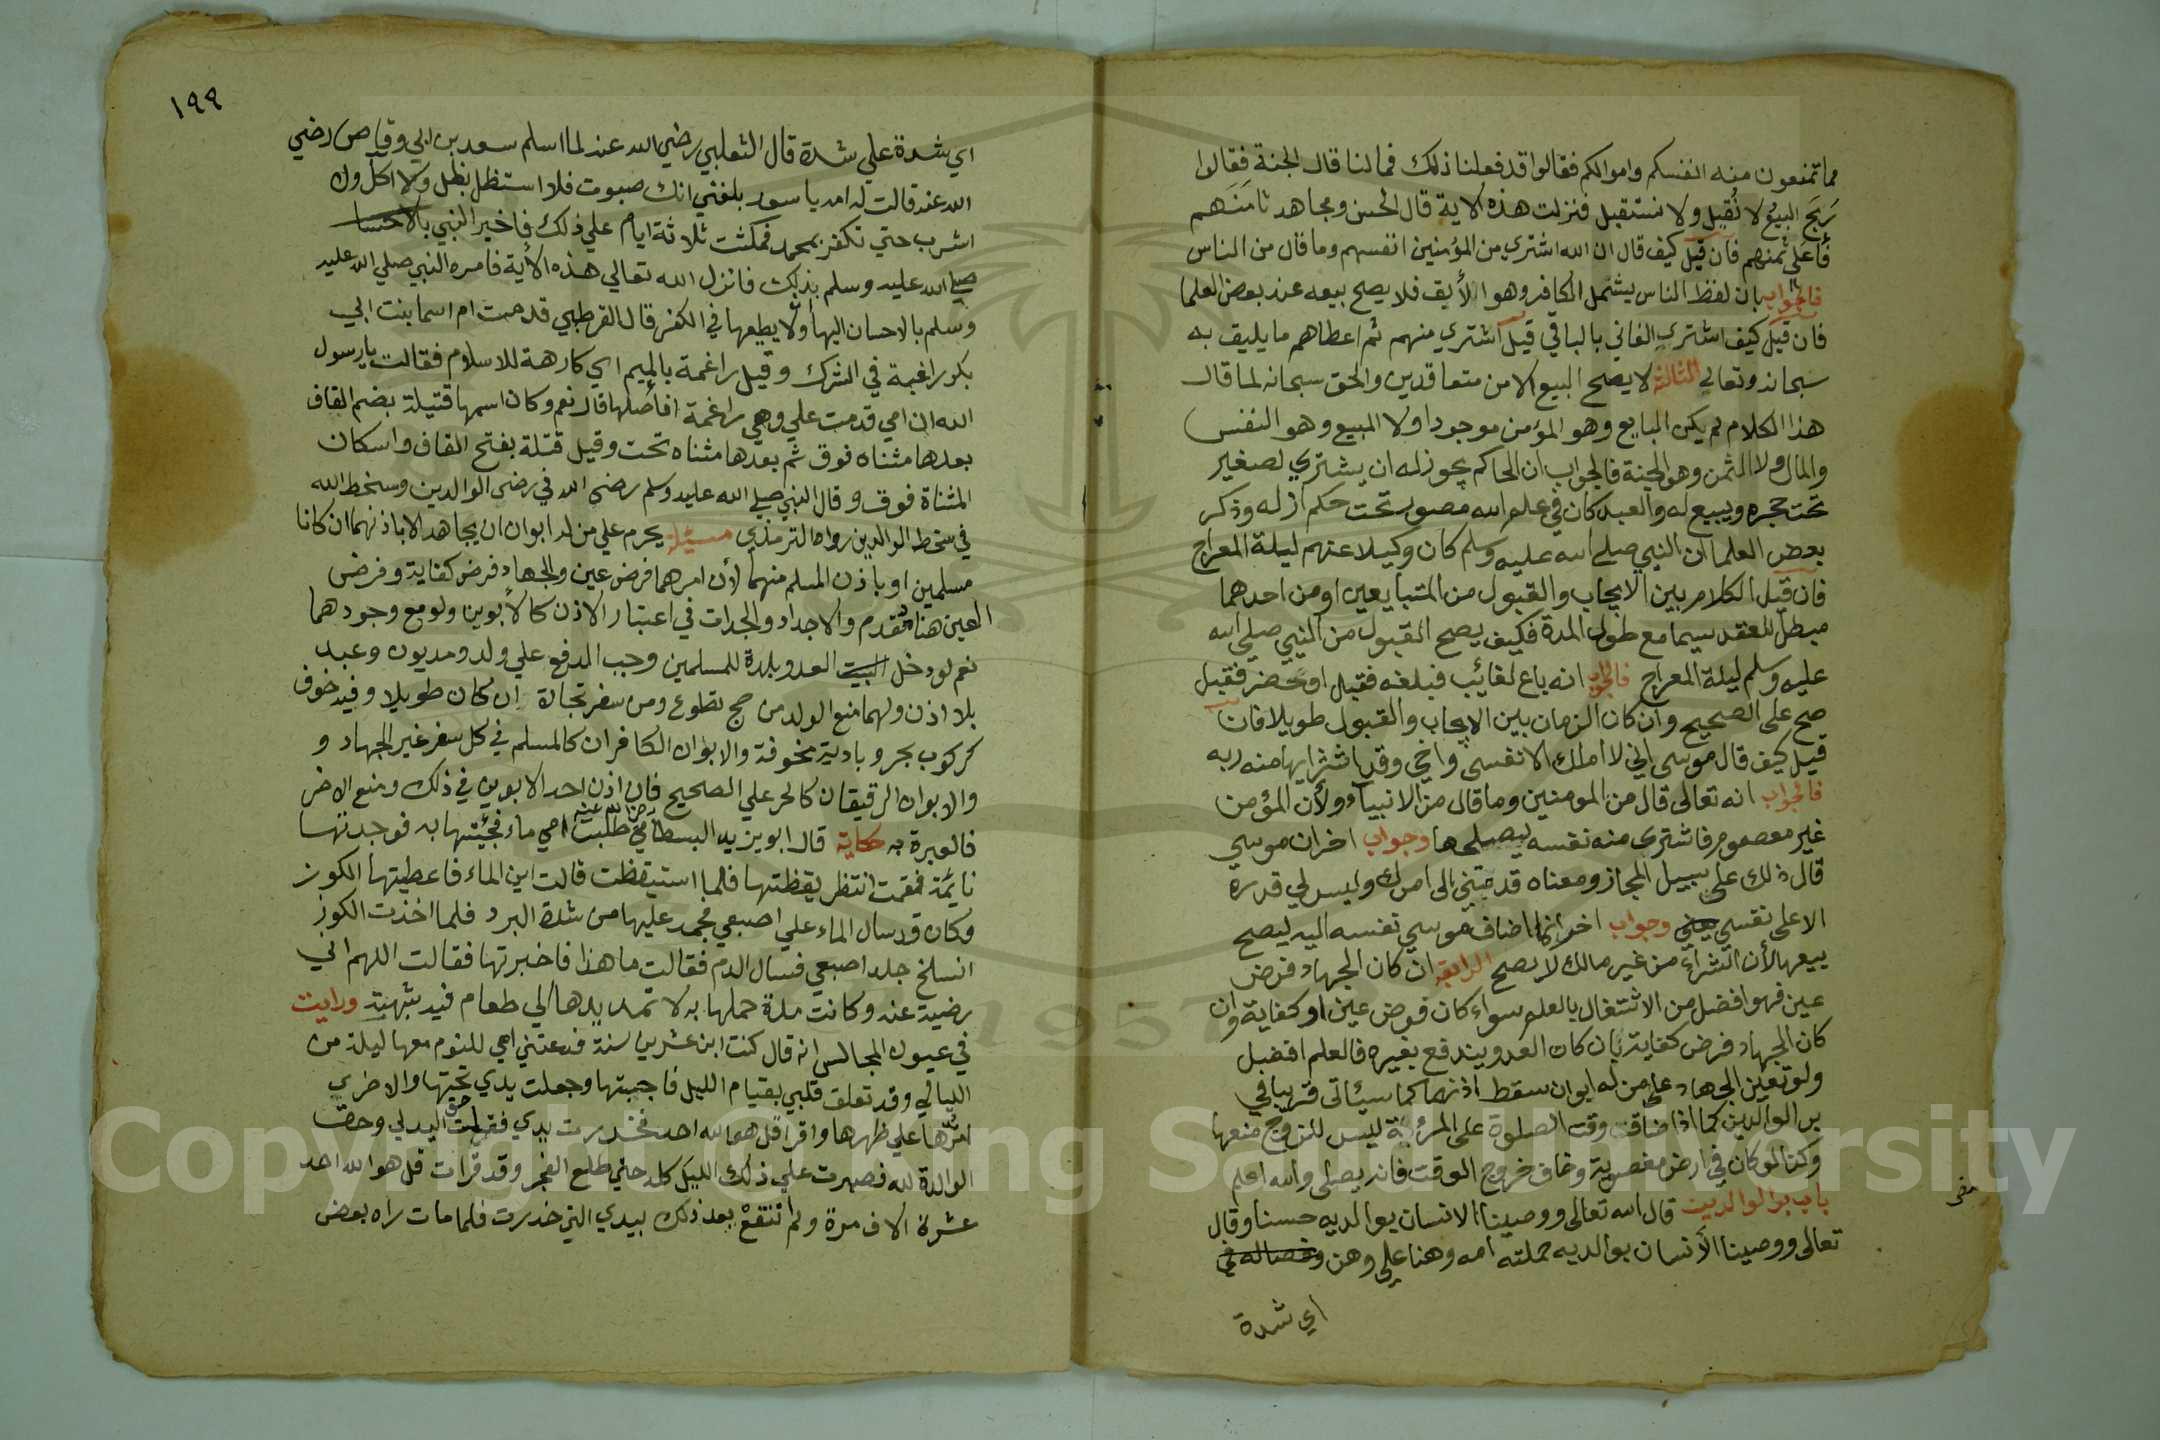 مما تمنعون منه انفسكم واموالكم فقالوا قد فعلنا ذلك فما لنا قال الجنة فقالوا
رَبِحَ البيعُ لا نُقيل ولا نستقيل فنزلت هذه الاية قال الحسن ومجاهد ثامَنَهم
فأعلى ثمنهم فان قيل كيف قال ان الله اشتري من المؤمنين انفسهم وما قال من الناس
فالجواب بان لفظ الناس يشتمل الكافر وهو الأبق فلا يصح بيعه عند بعض العلما
فان قيل كيف اشتري الفاني بالباقي قيل اشتري منهم ثم اعطاهم ما يليق به
سبحانه وتعالي الثالثة لا يصلح البيع الا من متعاقدين والحق سبحانه لما قال
هذا الكلام لم يكن البايع وهو المؤمن موجودا ولا المبيع وهو النفس
والمال ولا الثمن وهو الجنة فالجواب ان الحاكم يجوز له ان يشتري لصغير
تحت حجره ويبيع له والعبد كان في علم الله مصور تحت حكم ازله وذكر
بعض العلما ان النبي صلي الله عليه وسلم كان وكيلا عنهم ليلة المعراج
فان قيل الكلام بين الايجاب والقبول من المتبايعين او من احدهما
مبطل للعقد سيما مع طول المدة فكيف يصح القبول من النبي صلي الله
عليه وسلم ليلة المعراج فالجواب انه باع لغائب فبلغه فقبل او حضر فقبل
صح على الصحيح وان كان الزمان بين الايجاب والقبول طويلا فان
قيل كيف قال موسى اني لا املك الا نفسي واخي وقد اشتراها منه ربه
فالجواب انه تعالى قال من المومنين وما قال من الانبياء ولأن المؤمن
غير معصوم فاشتري منه نفسه ليصلحها وجواب اخر ان موسي
قال ذلك على سبيل المجاز ومعناه قدمتني الى امرك وليس لي قدرة
الا على نفسي يعني وجواب اخر انما اضاف موسي نفسه اليه ليصح
بيعها لأن الشراء من غير مالك لا يصح الرابعة ان كان الجهاد فرض
عين فهو افضل من الاشتغال بالعلم سواء كان فرض عين او كفاية وان
كان الجهاد فرض كفاية بان كان العدو يندفع بغيره فالعلم افضل
ولو تعين الجهاد على من له ابوان سقط اذنهما كما سيئاتى قريبا في
بر الوالدين كما اذا ضاقت وقت الصلوة على المرؤة ليس للزوج منعها
وكذا لو كان في ارض مغصوبة وخاف خروج الوقت فانه يصلى والله اعلم
باب بر الوالدين قال الله تعالى ووصينا الانسان بوالديه حسنا وقال
تعالى ووصينا الأنسان بوالديه حملته امه وهنا على وهن وفصاله في
اي شدة
١٩٩
اي شدة علي شدة قال الثعلبي رضي الله عنه لما اسلم سعد بن ابي وقاص رضي
الله عنه قالت له امه يا سعد بلغني انك صبوت فلا استظل بظل ولا اكل ولا
اشرب حتي تكفر بمحمد فمكثت ثلاثة ايام علي ذلك فاخبر النبي بالاحسا
صلي الله عليه وسلم بذلك فانزل الله تعالي هذه الأية فامره النبي صلي الله عليه
وسلم بالاحسان اليها ولا يطعها في الكفر قال القرطبي قدمت ام اسما بنت ابي
بكر راغبة في الشرك وقيل راغمة بالميم اي كارهة للاسلام فقالت يا رسول
الله ان امي قدمت علي وهي راغمة افأصلها قال نعم وكان اسمها قتيلة بضم القاف
بعدها مثناه فوق ثم بعدها مثناه تحت وقيل قتلة بفتح القاف واسكان
المثناة فوق وقال النبي صلي الله عليه وسلم رضى الله في رضى الوالدين وسخط الله
في سخط الوالدين رواه الترمذي مسئلة يحرم علي من له ابوان ان يجاهد الا باذنهما ان كانا
مسلمين او باذن المسلم منهما لأن امرهما فرض عين والجهاد فرض كفاية وفرض
العين هنا مقدم والاجداد والجدات في اعتبار الاذن كالأبوين ولو مع وجودهما
نعم لو دخل البيت العدو بلدة للمسلمين وجب الدفع علي ولد ومديون وعبد
بلا اذن ولهما منع الولد من حج تطوع ومن سفر تجارة ان كان طويلا وفيه خوف
كركوب بحر وبادية مخوفة والابوان الكافران كالمسلم في كل سفر غير الجهاد و
والابوان الرقيقان كالحر علي الصحيح فان اذن احد الابوين في ذلك ومنع الاخر
فالعبرة به حكاية قال ابو يزيد البسطامي رضي الله عنه طلبت امي ماء فجئتها به فوجدتها
نايمة فقمت انتظر يقظتها فلما استيقظت قالت اين الماء فاعطيتها الكوز
وكان قد سال الماء علي اصبعي فجمد عليها من شدة البرد فلما اخذت الكوز
انسلخ جلد اصبعي فسال الدم فقالت ما هذا فاخبرتها فقالت اللهم اني
رضيت عنه وكانت مدة حملها به لا تمد يدها الي طعام فيه شبهة ورايت
في عيون المجالس انه قال كنت ابن عشرين سنة فدعتني امي للنوم معها ليلة من
الليالي وقد تعلق قلبي بقيام الليل فاجبتها وجعلت يدي تحتها والاخري
امرّها علي ظهرها واقرا قل هو الله احد فخدرت يدي فقلت اليد لي وحق
الوالدة لله فصبرت علي ذلك الليل كله حتي طلع الفجر وقد قرات قل هو الله احد
عشرة الاف مرة ولم انتفع بعد ذلك بيدي التي خدرت فلما مات راه بعض
Copyright © King Saud University
1957